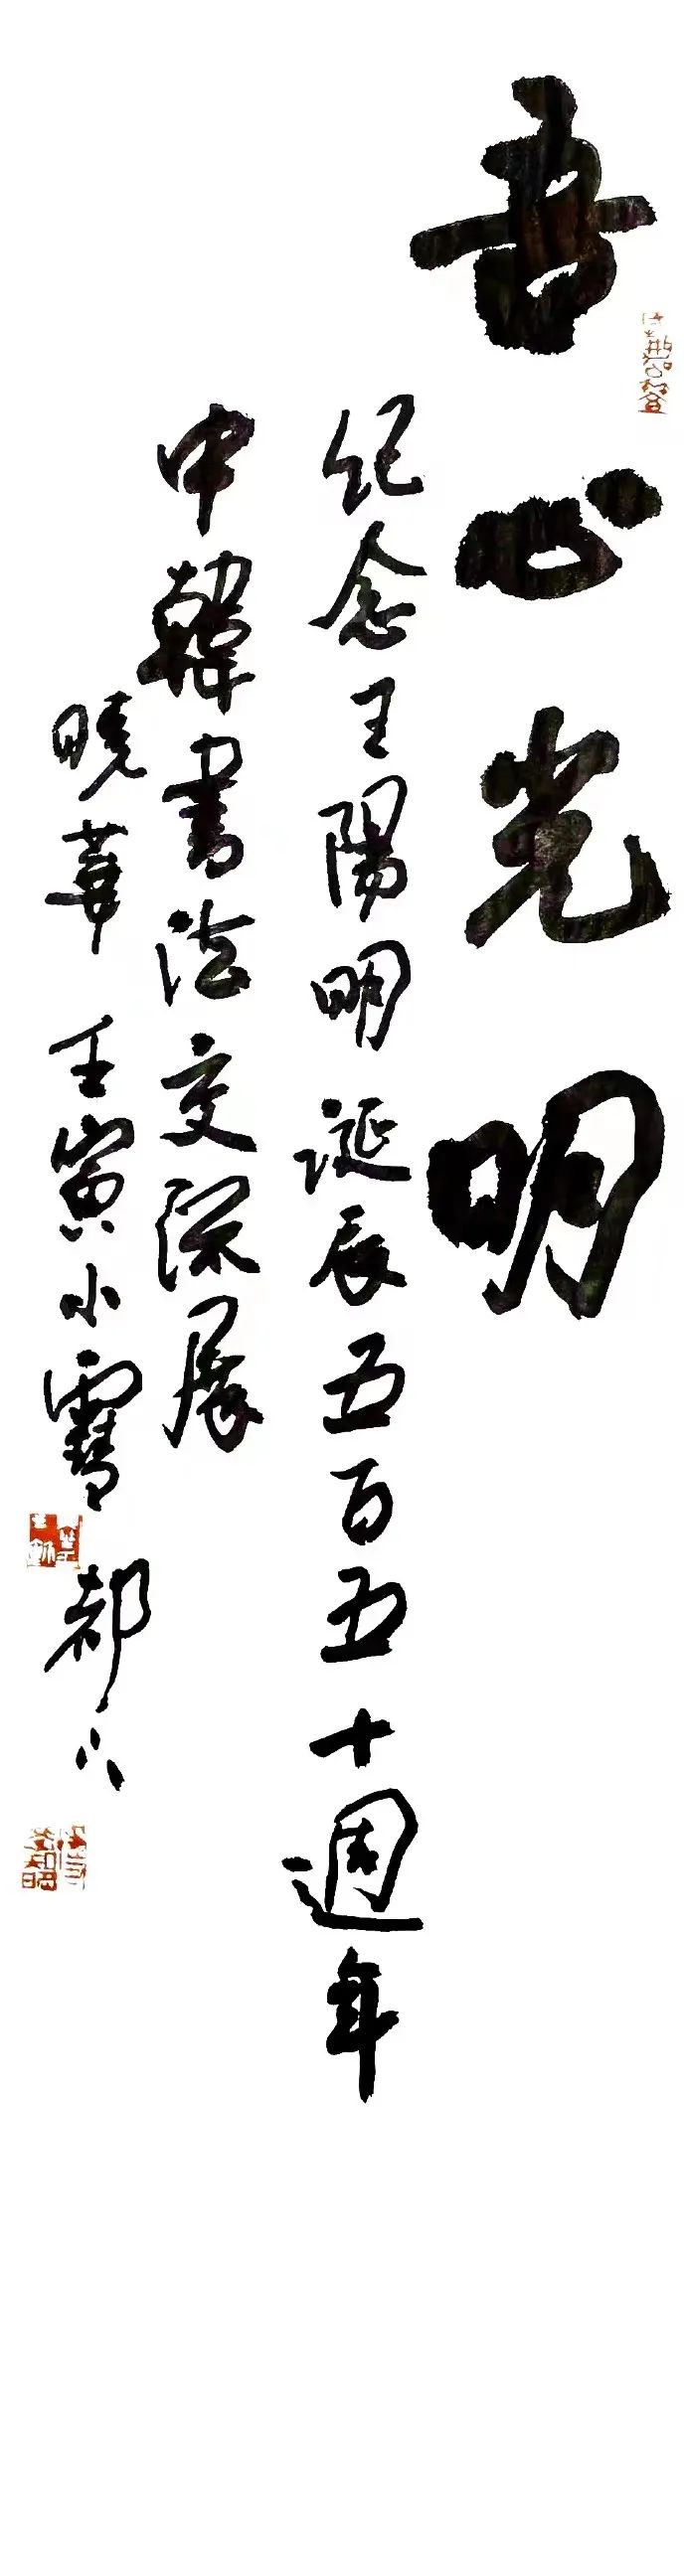 吾心光明
纪念王陽明诞辰五百五十週年
中韓書法交流展
曉華 壬寅小雪 於都